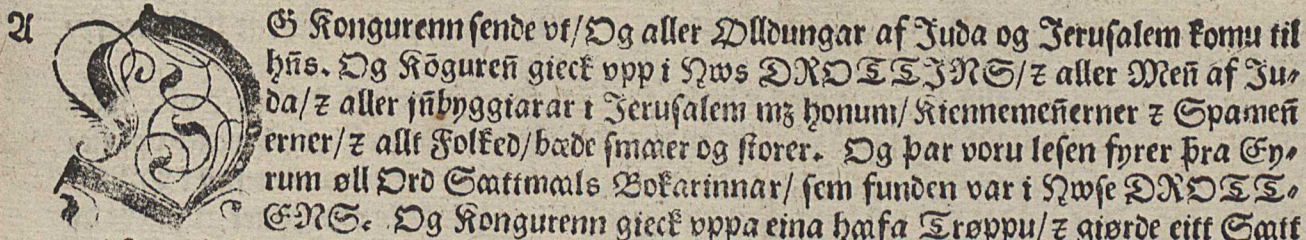 A
OG Kongurenn sende vt/ Og aller Ølldungar af Juda og Jerusalem komu til
hn̄s. Og Kōguren̄ gieck vpp i Hws DROTTJNS/ ꝛ aller Men̄ af Ju-
da/ ꝛ aller jn̄byggiarar i Jerusalem mꝫ honum/ Kiennemen̄erner ꝛ Spamen̄
erner/ ꝛ allt Folked/ bæde smærer og storer. Og þar voru lesen fyrer þr̄a Ey-
rum øll Ord Sættmæls Bokarinnar/ sem funden var i Hwse DROTT-
ENS. Og Kongurenn gieck vppa eina hæfa Trøppu/ ꝛ giørde eitt Sætt